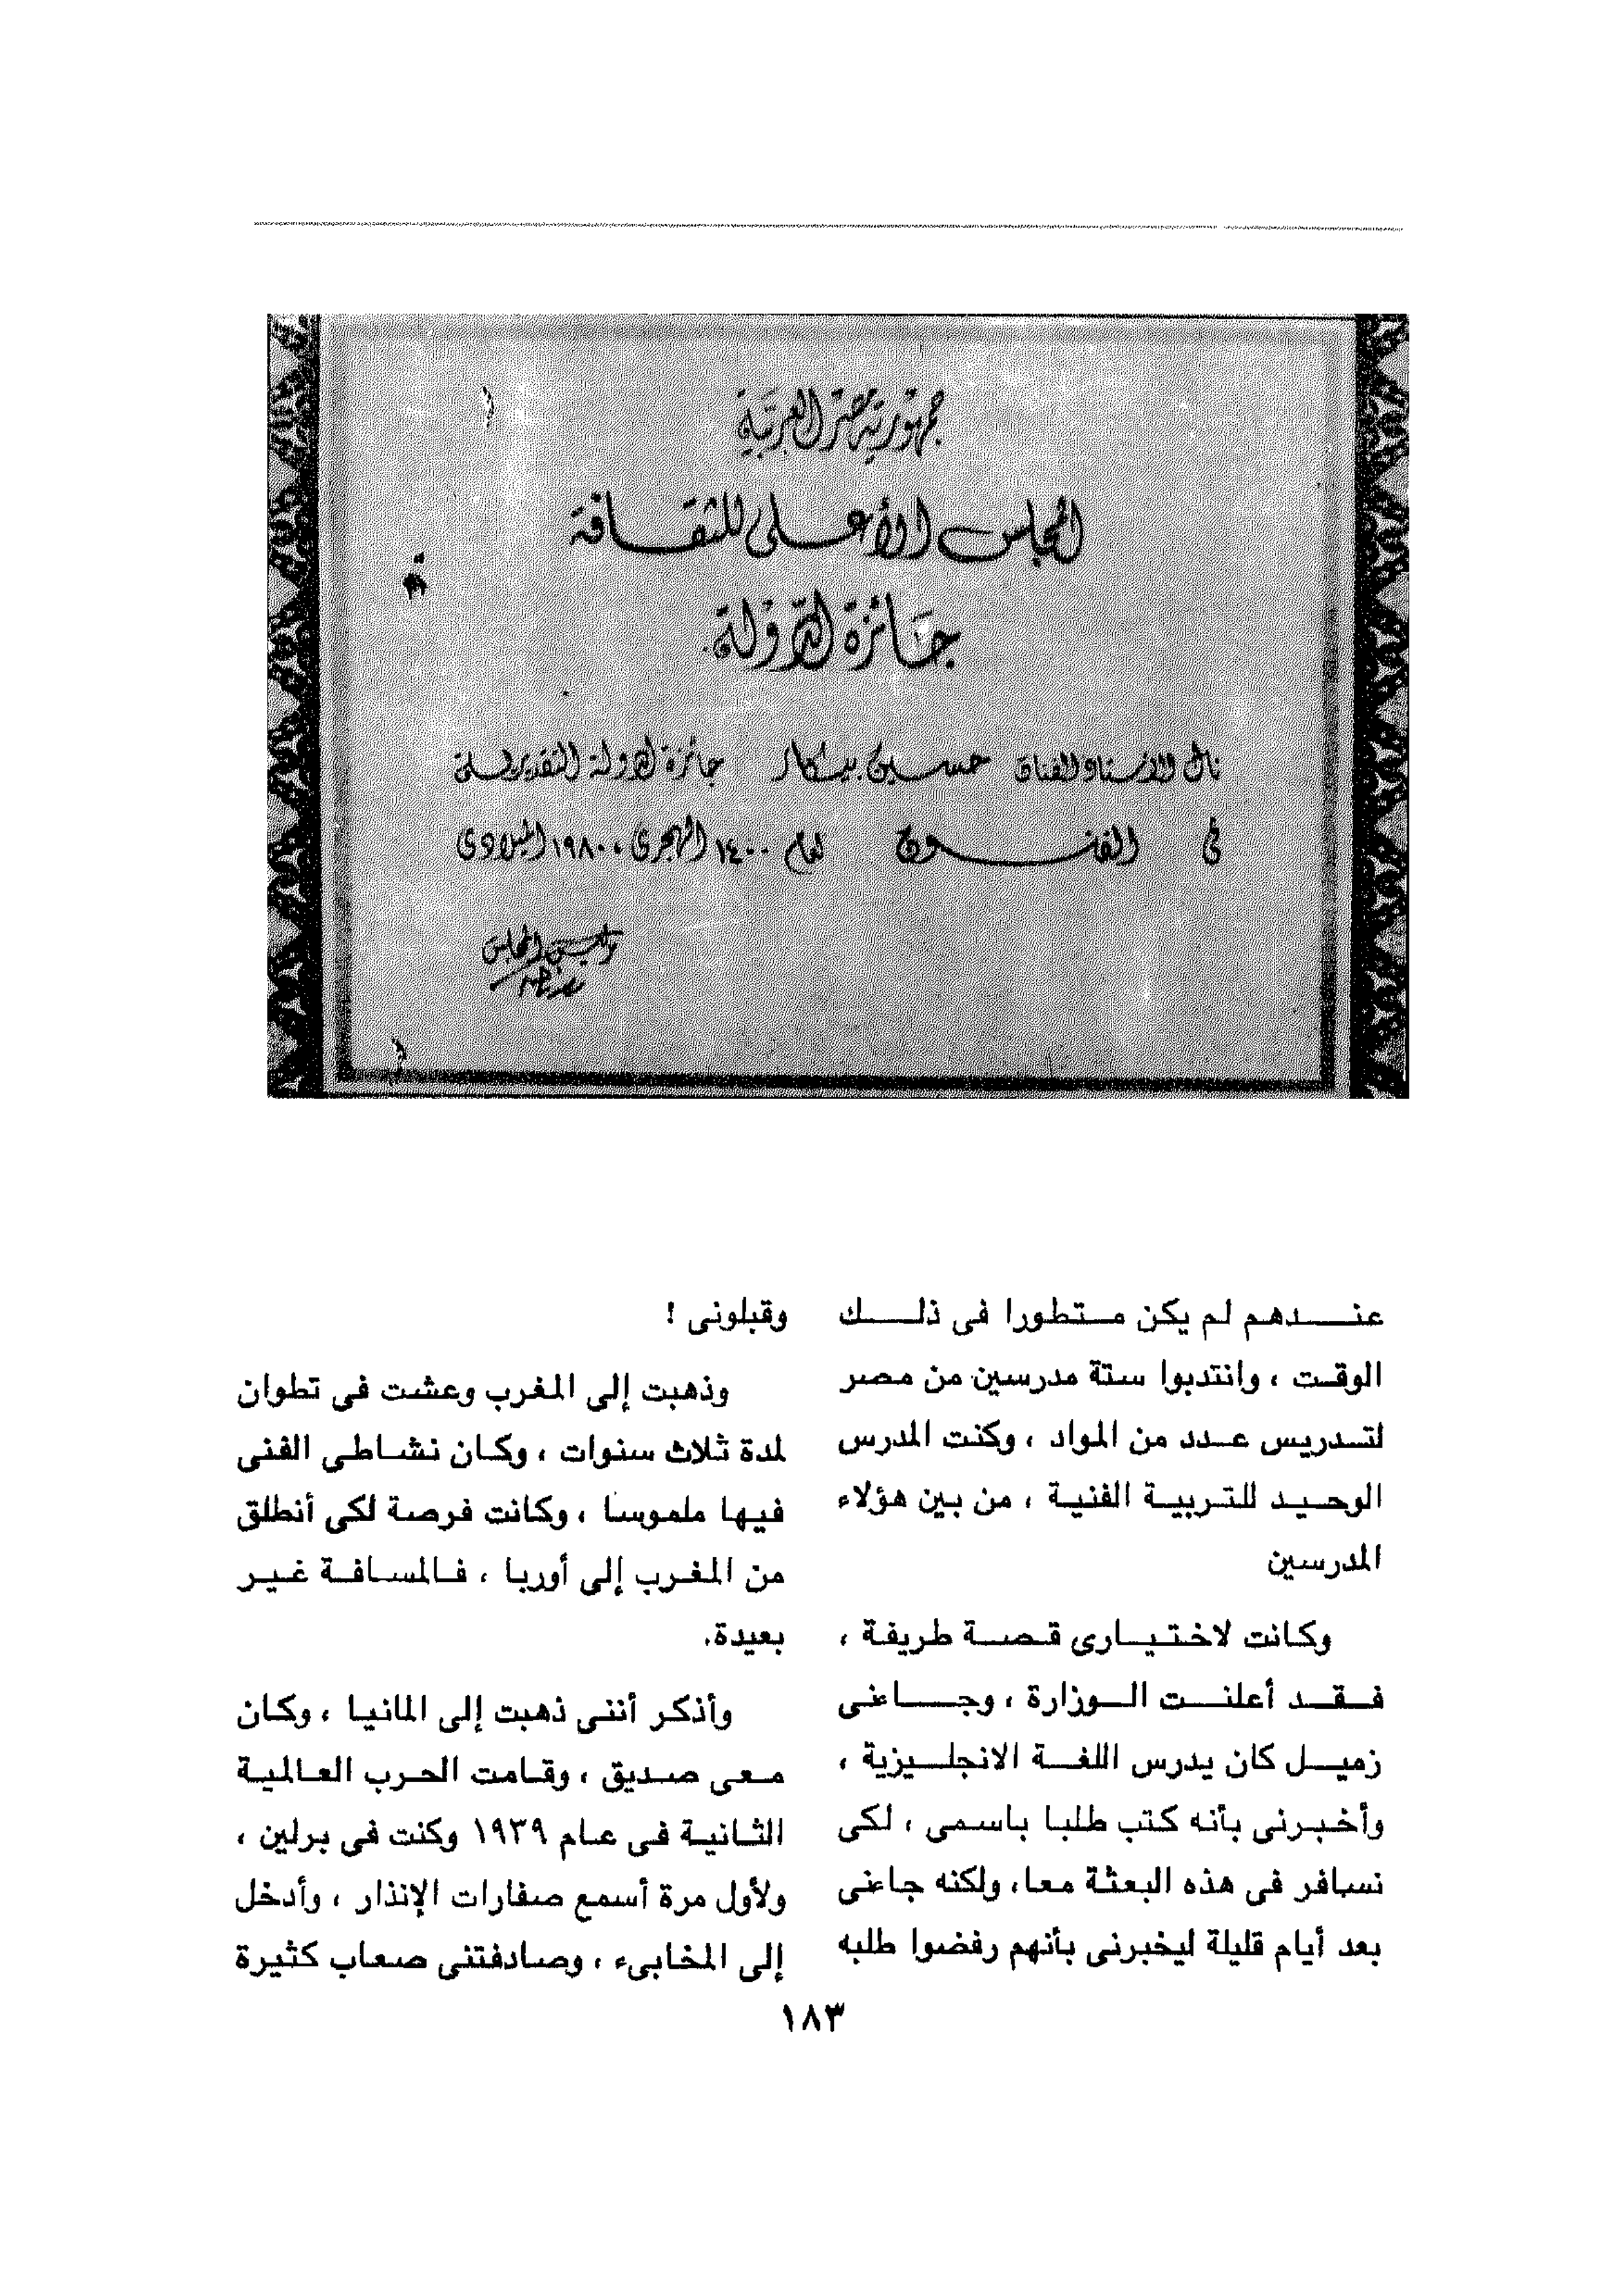 جمهورية مصر العربية
المجلس الأعلى للثقافة
جائزة الدولة
نال الأستاذ الفنان حسين بيكار جائزة الدولة التقديرية
فى الفنون لعام ١٤٠٠ الهجرى ، ١٩٨٠ الميلادى
رئيس المجلس
عنــدهم لم يكن متطورا فى ذلك
الوقت ، وانتدبوا ستة مدرسين من مصر
لتدريس عدد من المواد ، وكنت المدرس
الوحيد للتربية الفنية ، من بين هؤلاء
المدرسين
وكانت لاختيارى قصة طريفة ،
فقد أعلنت الوزارة ، وجاءنى
زميل كان يدرس اللغة الانجليزية ،
وأخبرنى بأنه كتب طلبا باسمى ، لكى
نسافر فى هذه البعثة معا، ولكنه جاءنى
بعد أيام قليلة ليخبرنى بأنهم رفضوا طلبه
وقبلونى !
وذهبت إلى المغرب وعشت فى تطوان
لمدة ثلاث سنوات ، وكان نشاطى الفنى
فيها ملموسا ، وكانت فرصة لكى أنطلق
من المغرب إلى أوربا ، فالمسافة غير
بعيدة.
وأذكر أننى ذهبت إلى المانيا ، وكان
معى صديق ، وقامت الحرب العالمية
الثانية فى عام ١٩٣٩ وكنت فى برلين ،
ولأول مرة أسمع صفارات الإنذار ، وأدخل
إلى المخابىء ، وصادفتنى صعاب كثيرة
١٨٣